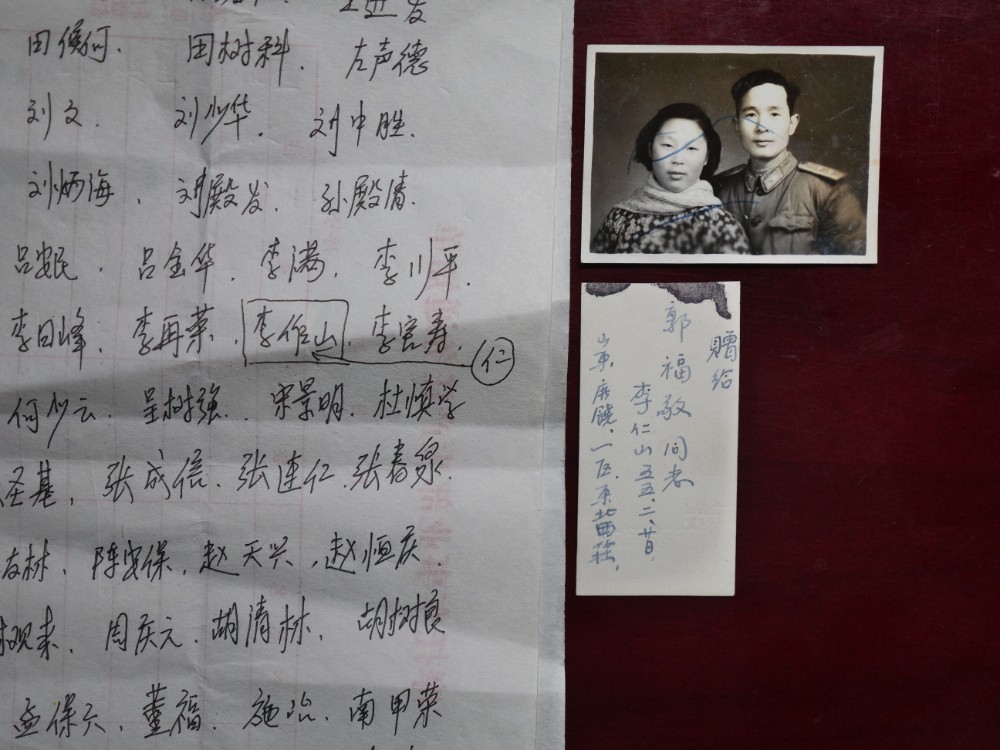 田侯何. 田树科. 左声德
刘文. 刘少华. 刘中胜.
刘炳海、刘殿发、孙殿清.
吕安民、吕金华、李满、李川平.
李日峰、李再荣、李作山、李官寿.
仁
何少云、呈树强、宋景明、杜慎学
圣基，张成信、张连仁、张春泉.
友林、陈安保，赵天兴，赵恒庆.
观来、周庆元、胡清林、胡树良
孟保六、董福、施治、南甲荣
赠给
郭福敬同志
李仁山五五、二、廿日.
山东、广饶、一区、东北西张，